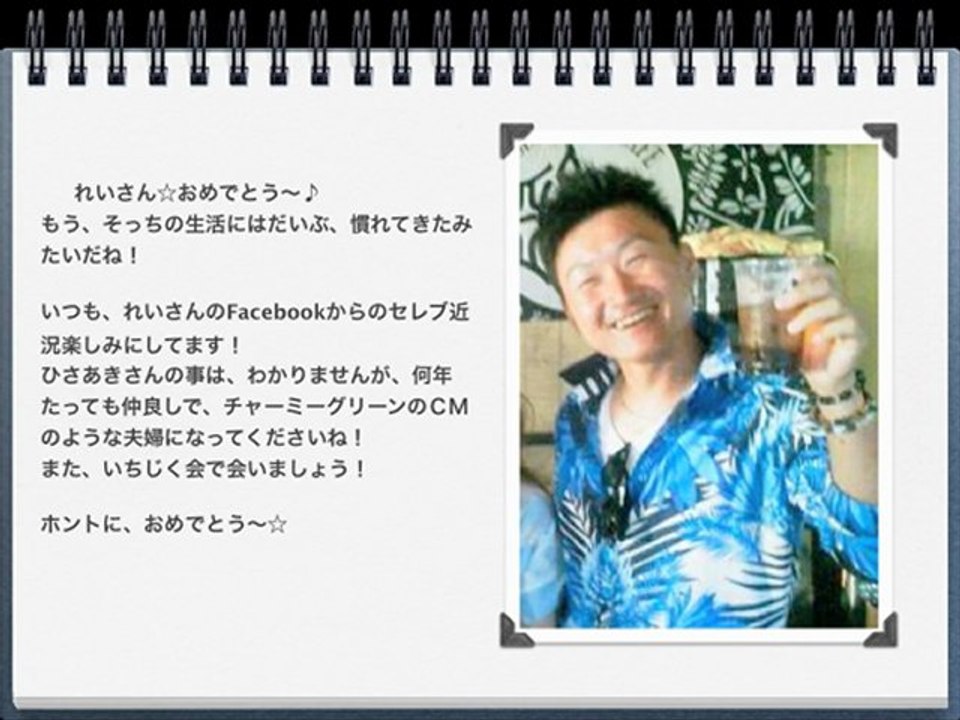 れいさん☆おめでとう〜♪
もう、そっちの生活にはだいぶ、慣れてきたみ
たいだね！
いつも、れいさんのFacebookからのセレブ近
況楽しみにしてます！
ひさあきさんの事は、わかりませんが、何年
たっても仲良しで、チャーミーグリーンのＣＭ
のような夫婦になってくださいね！
また、いちじく会で会いましょう！
ホントに、おめでとう〜☆